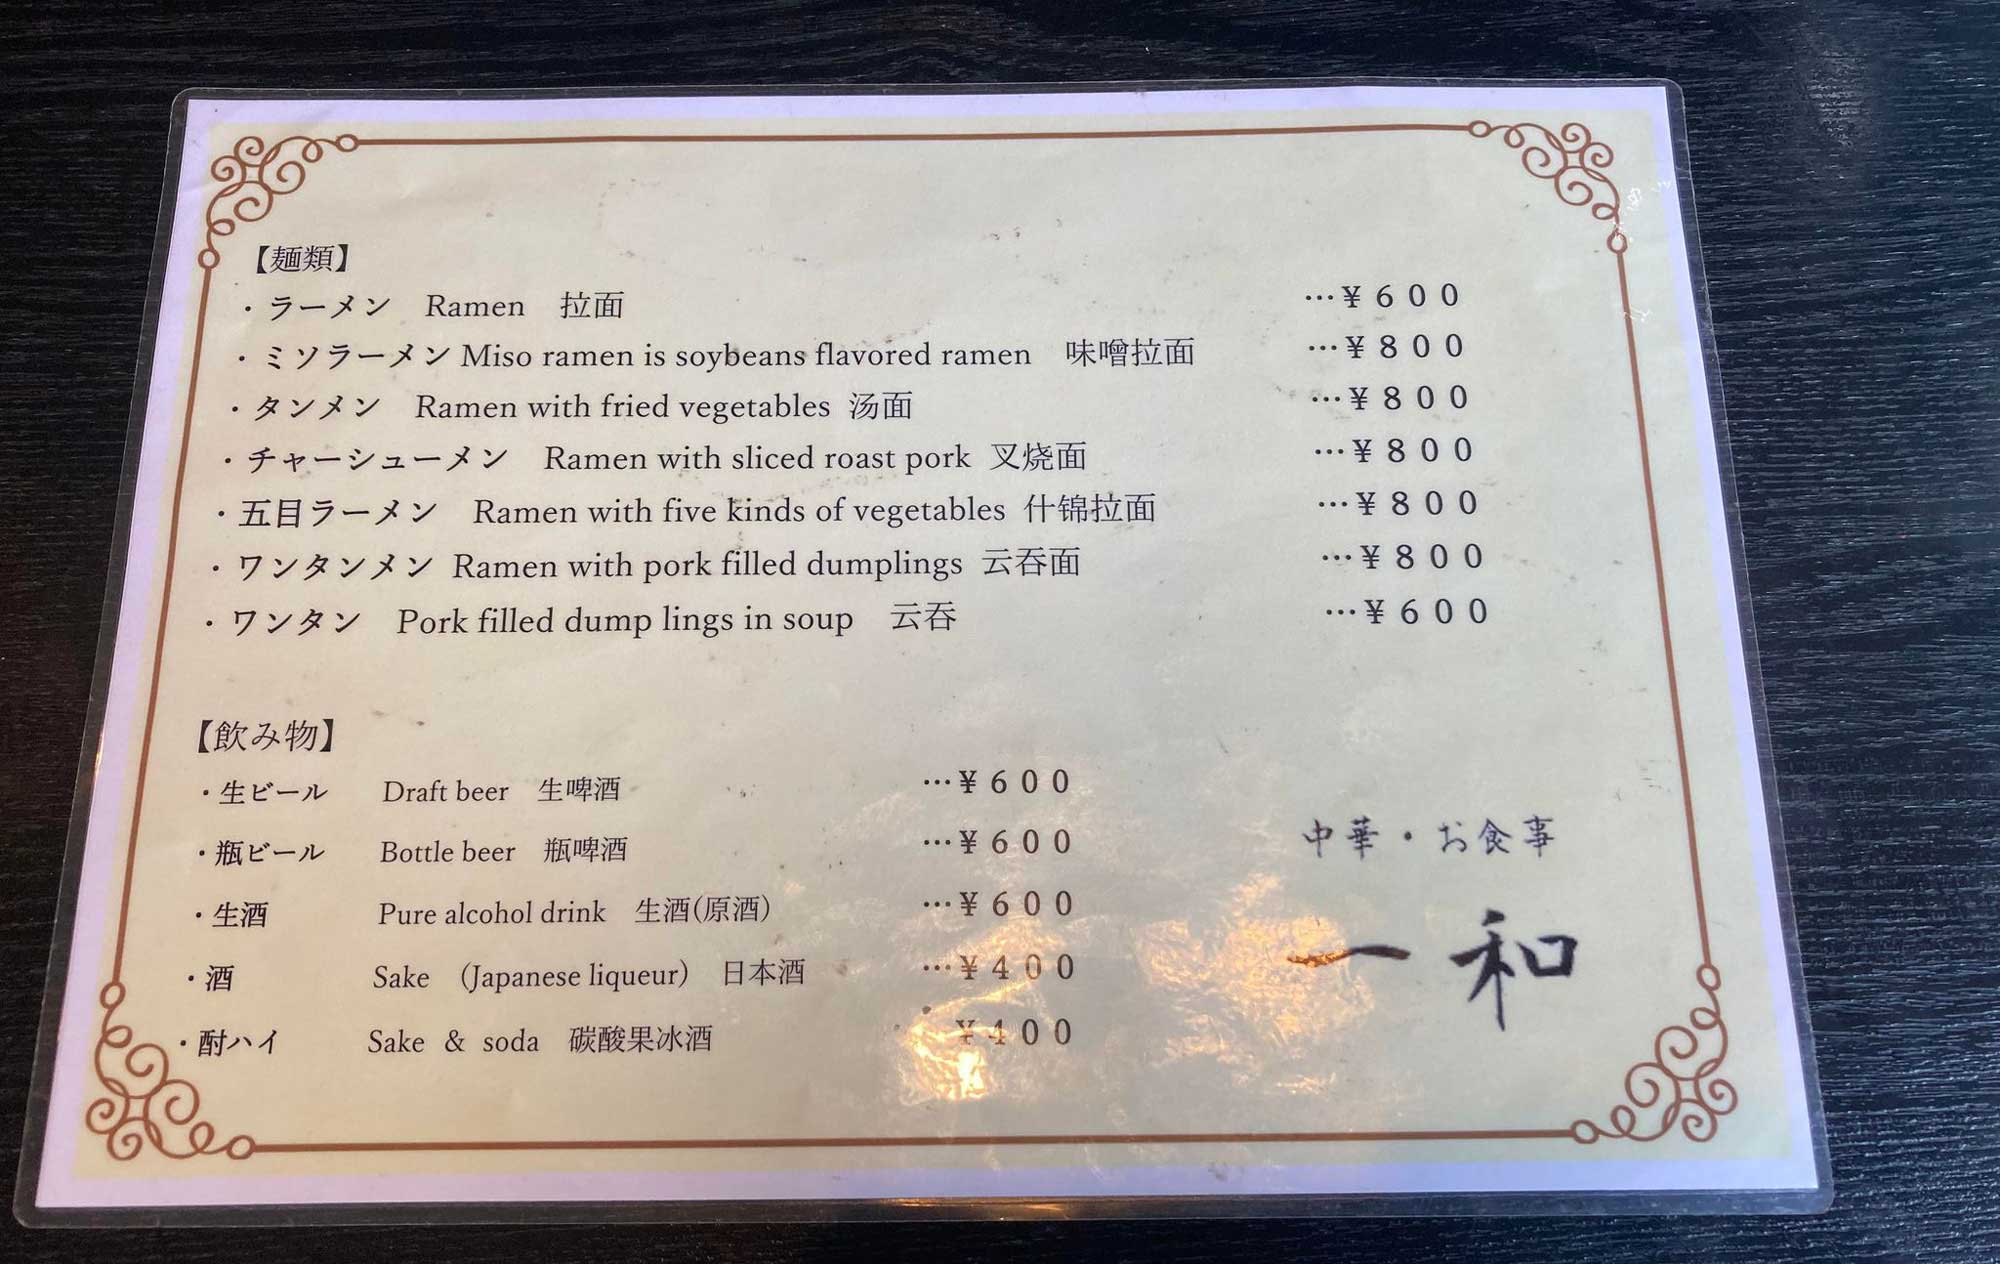 【麺類】
・ラーメン Ramen 拉面 …¥600
・ミソラーメン Miso ramen is soybeans flavored ramen 味噌拉面 …¥800
・タンメン Ramen with fried vegetables 汤面 …¥800
・チャーシューメン Ramen with sliced roast pork 叉烧面 …¥800
・五目ラーメン Ramen with five kinds of vegetables 什锦拉面 …¥800
・ワンタンメン Ramen with pork filled dumplings 云吞面 …¥800
・ワンタン Pork filled dump lings in soup 云吞 …¥600
【飲み物】
・生ビール Draft beer 生啤酒 …¥600
・瓶ビール Bottle beer 瓶啤酒 …¥600
・生酒 Pure alcohol drink 生酒(原酒) …¥600
・酒 Sake (Japanese liqueur) 日本酒 …¥400
・酎ハイ Sake & soda 碳酸果冰酒 ¥400
中華・お食事
一和